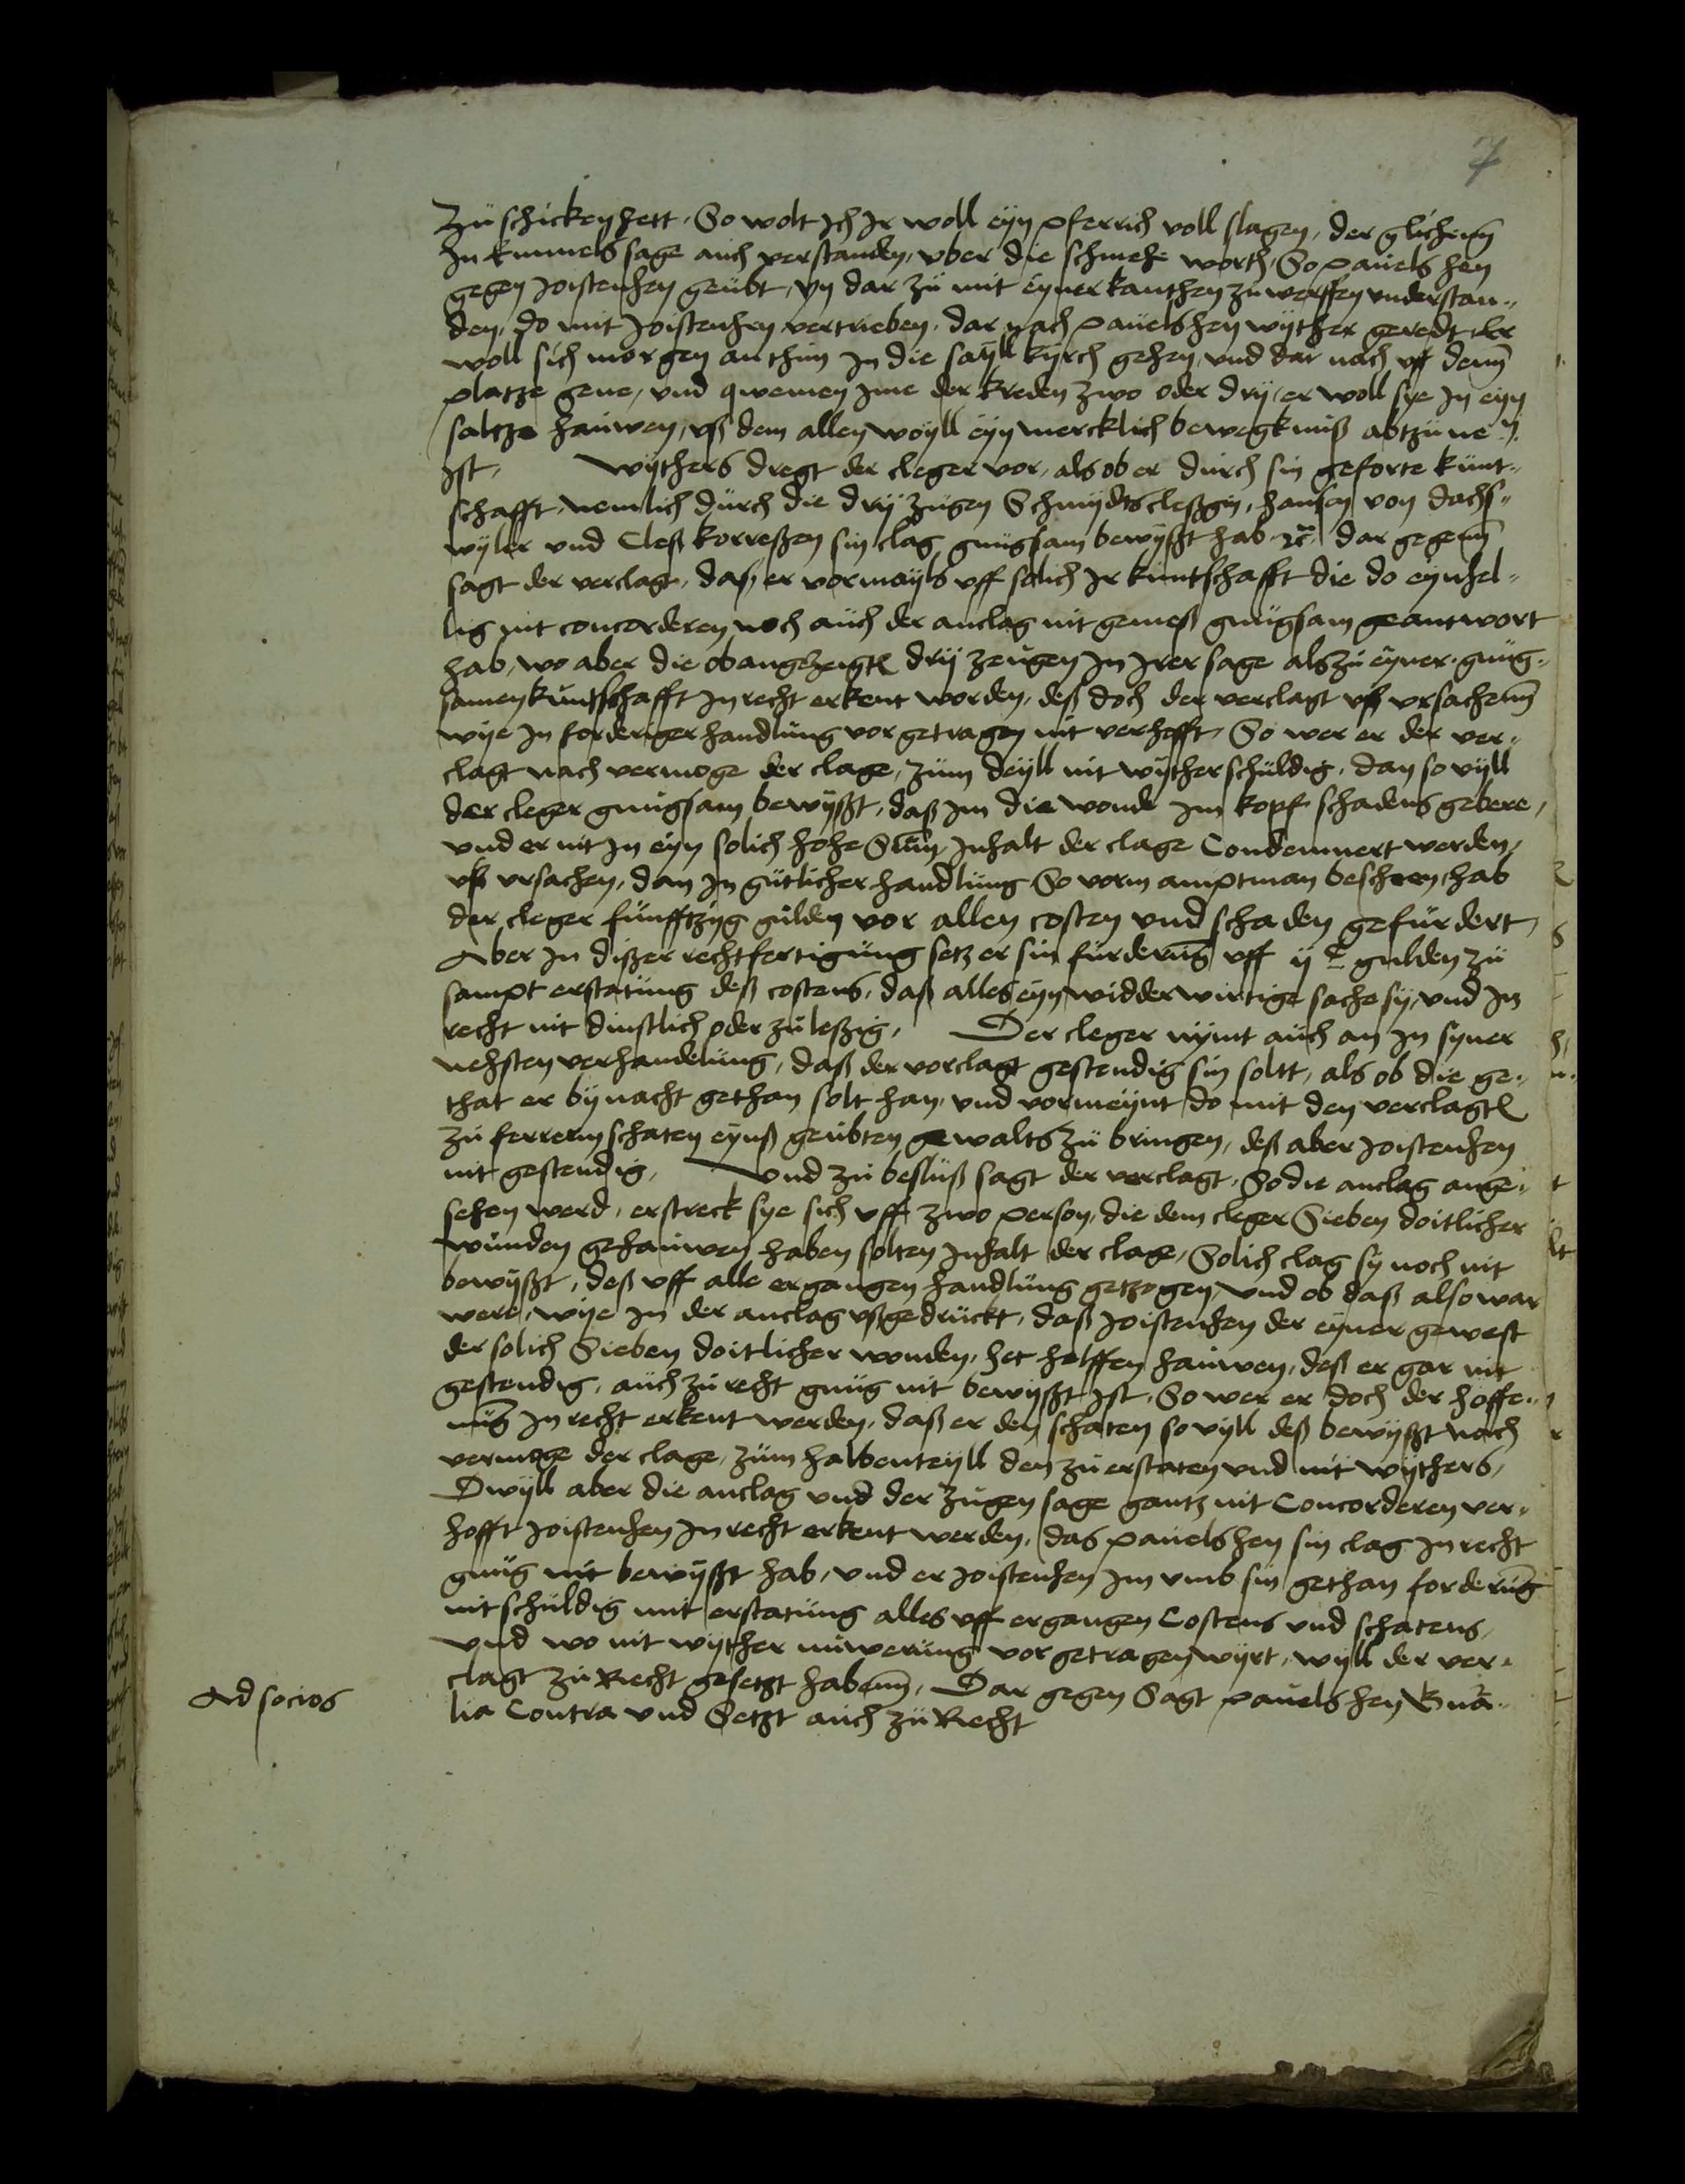 7
zu schicken hett, So wolt Ich Ir woll eyn pferrich voll slagen, der glichenn
In kummels sage auch verstanden, vber die schmehe worth, So pauels hen
gegen Joistenhen geübt, vn dar zü mit eyner kanthen zu werffen vnderstan-
den, Do mit Joistenhen vertrieben, dar nach pauelshen wyther geredt er
woll sich morgen anthun In die sayll kyrch gehen, vnd dar nach vff denn
platze gene, vnd qwemen Ime der kreden zwo oder drÿ er woll sye In eyn
saltze hauwen, vß dem allen woyll eyn mercklich bewegkniß abtzünem
Ist, Wythers dregt der cleger vor, als ob er durch sin geforte künt-
schafft, nemlich dürch die drÿ zugen Schmydts cleßgin, hansen von dachs-
wyler vnd Cleß korreßen sin clag gnügsam bewÿßt hab ꝛc̃ dar gegenn
sagt der verclagt, daß er vormayls vff solich Ir kuntschafft die do eynhel-
lig nit concorderen noch auch der anclag nit gemeß gnügsam geantwort
hab, wo aber die obangezeigt drÿ zeugen In Irer sage als zu eyner gnüg-
samen kuntschafft In recht erkent worden, deß doch der verclagt vß vrsachenn
wÿe In forderiger handlüng vor getragen nit verhofft, So wer er der ver-
clagt nach vermoge der clage, züm deyll nit wyther schüldig, dan so vyll
der cleger gnügsam bewÿßt, daß Im die wonde Im kopf schadens gebere,
vnd er nit In eyn solich hohe Süm, Inhalt der clage Condemnert werden,
vß vrsachen, dan In gütlicher handlüng So vorm amptman bescheen, hab
der cleger fünfftzig gulden vor allen costen vnd schaden gefürdert,
Aber In dißer rechtfertigüng setz er sin fürderüng vff ijᶜ gulden zü
sampt erstatüng deß costens, daß alles eyn widder wirtige sache sÿ, vnd In
recht nit dinstlich oder zuleßig, Der cleger nÿmt auch an In syner
nehsten verhandelüng, daß der vorclagt gestendig sin soltt, als ob die ge-
that er bÿ nacht gethan solt han, vnd vormeÿnt do mit den verclagt
zu ferrerm schaten eynß geübten gewalts zü bringen, deß aber Joistenhen
nit gestendig, Vnd zü beslüß sagt der verclagt, So die anclag ange-
sehen werd, erstreck sye sich vff zwo person, die dem cleger Sieben doitlicher
wünden gehauwen haben solten Inhalt der clage, Solich clag sy noch nit
bewÿßt, deß vff alle ergangen handlüng getzogen, vnd ob daß also war
were, wÿe In der anclag vßgedrückt, daß Joistenhen der eyner gewest
der solich Sieben doitlicher wonden, het helffen hauwen, deß er gar nit
gestendig, auch zü recht gnüg nit bewÿßt Ist, So wer er doch der hoffe-
nüg In recht erkent werden, daß er den schaten so vyll deß bewÿßt nach
vermoge der clage, züm halbenteyll den zu erstaten vnd nit wythers,
Dwÿll aber die anclag vnd der zugen sage gantz nit Concorderen ver-
hofft Joistenhen In recht erkent werden, das pauelshen sin clag In recht
gnüg nit bewÿßt hab, vnd er Joistenhen Im vmb sin gethan forderüng
nit schüldig mit erstatüng alles vff ergangen Costens vnd schatens,
vnd wo nit wyther nuwerüng vor getragen wyrt, wyll der ver-
clagt zu Recht gesetzt habenn, Dar gegen Sagt pauelshen
lia Contra vnd Setzt auch zü Recht
Ad socios